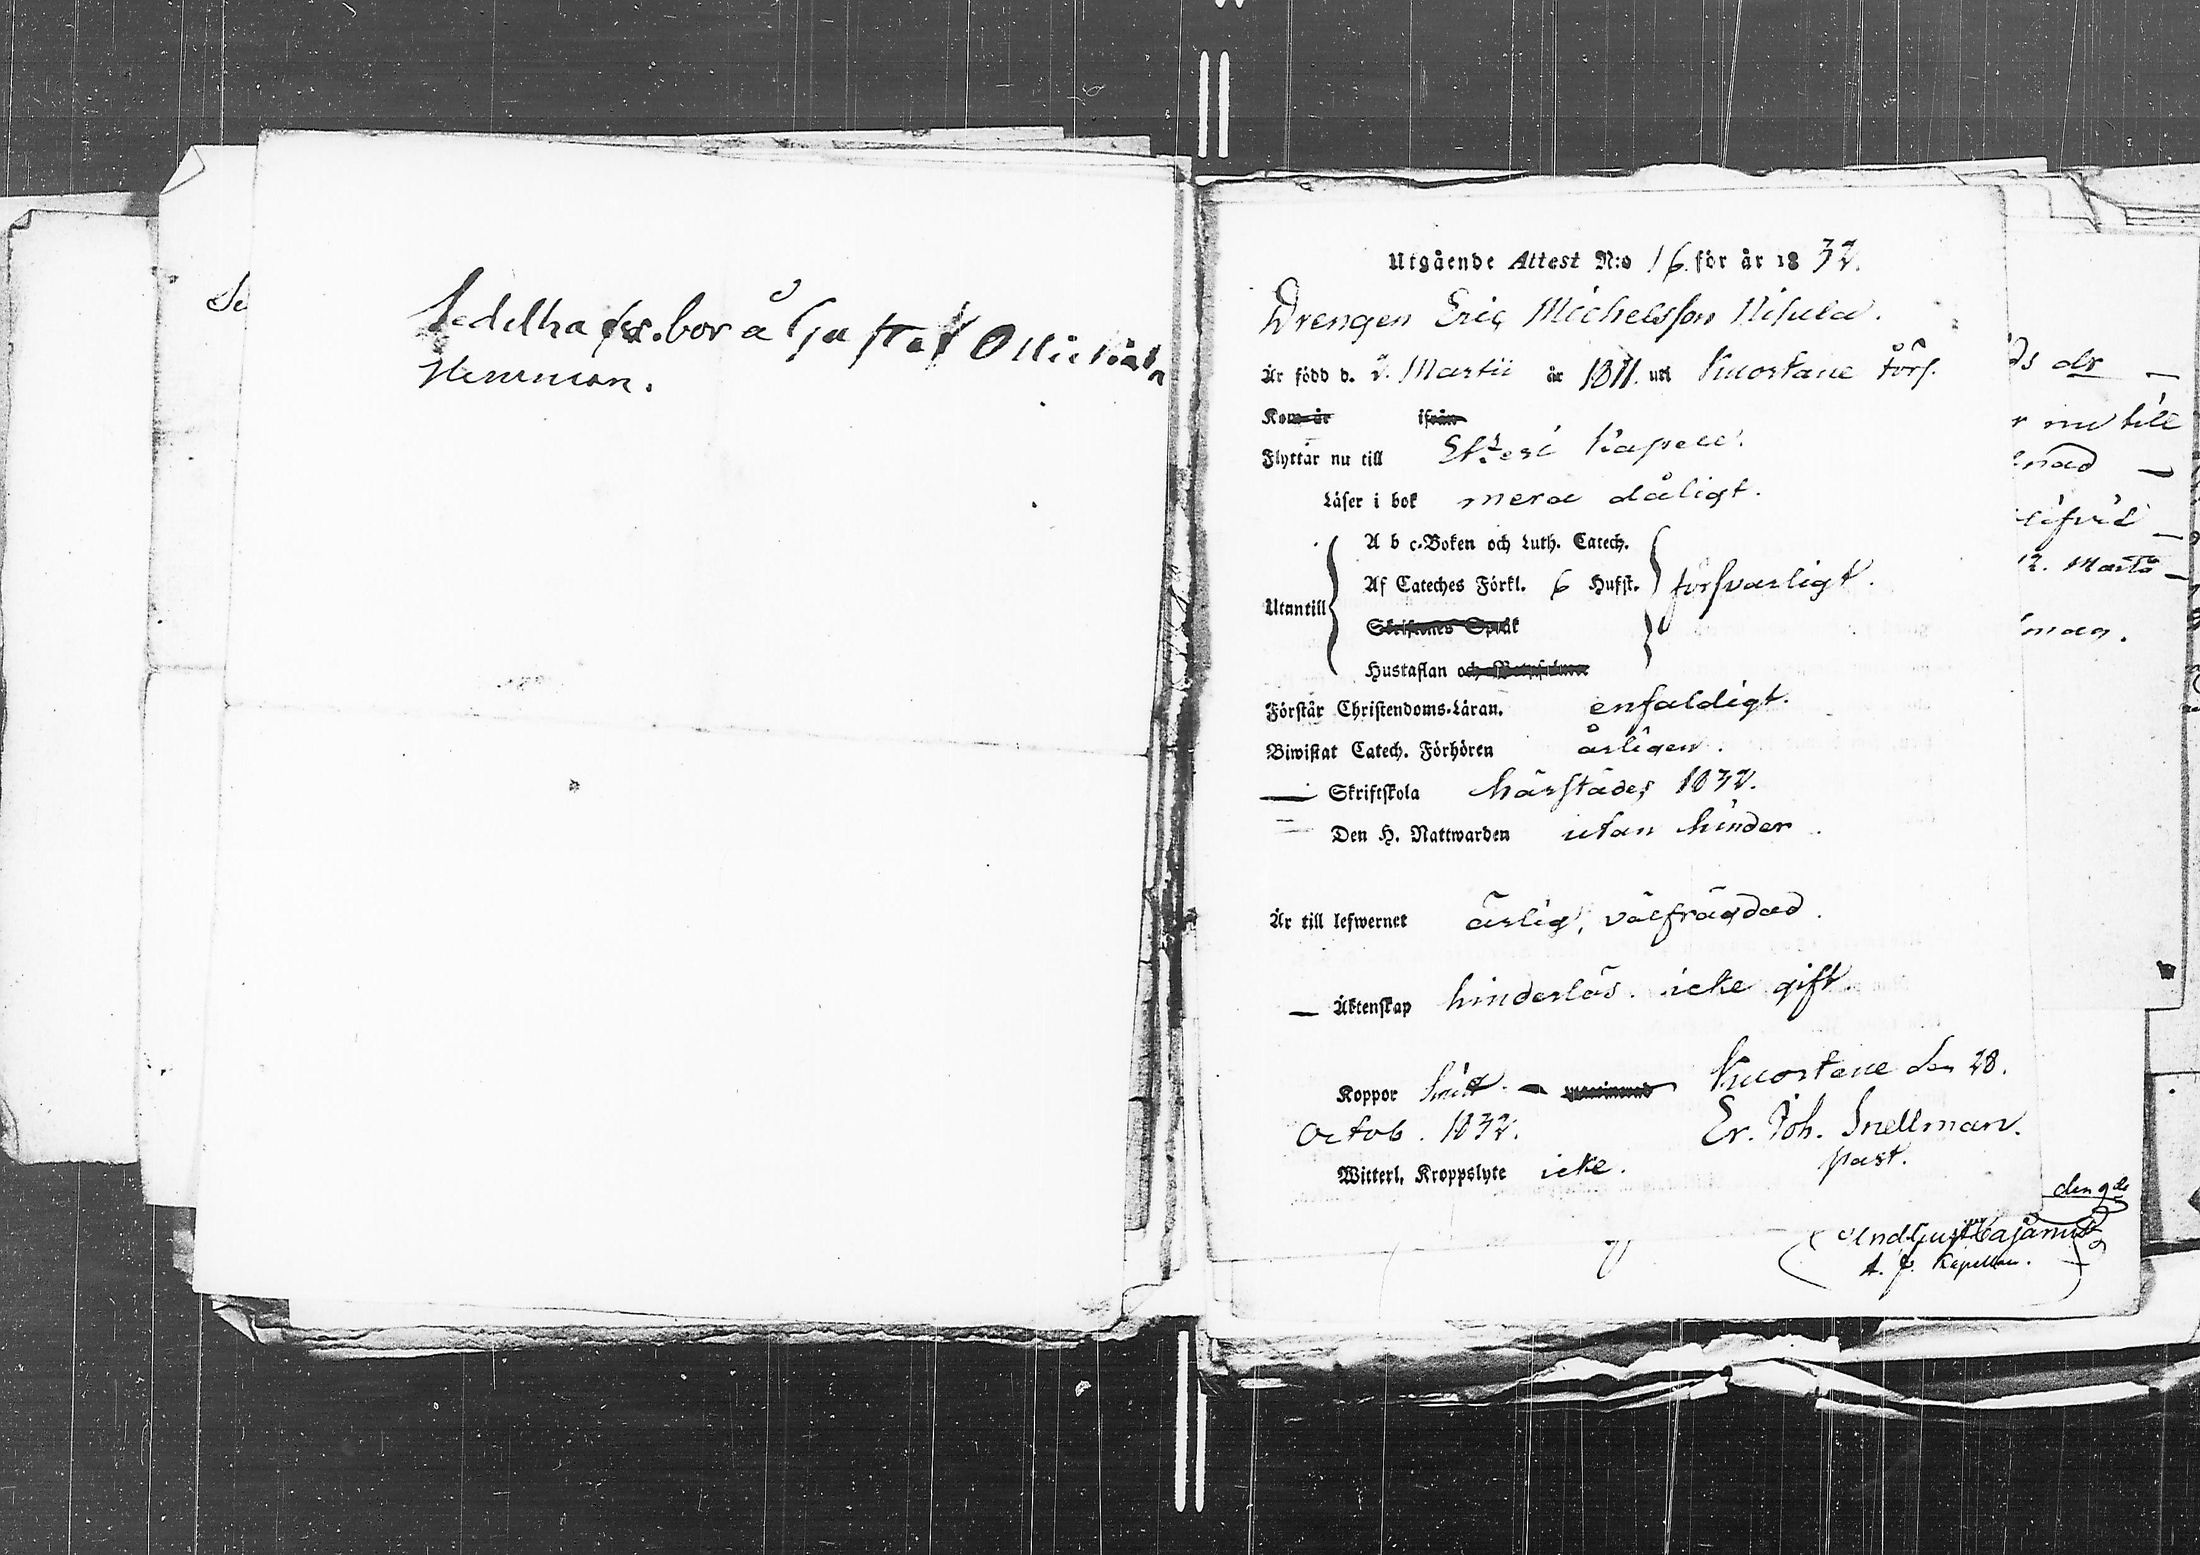 Sedelha fw. bor å Gustaf Ollikäla
Hemman.
Utgående Attest N:o 16. för år 1832.
Drengen Eric Michelsson Nisula.
Är född d. 2. Martii år 1811. uti Kuortane förs.
Kom år ifrån
Flyttar nu till Etzeri Kapell.
Läser i bok mera dåligt.
A b c-Boken och Luth. Catech.
Af Cateches Förkl. 6 Hufst. försvarligt.
Utantill
Skriftenes Språk
Hustaflan och
Förstår Christendoms-Läran. enfaldigt.
Biwistat Catech. Förhören årligen.
— Skriftskola härstädes 1832.
Den H. Nattwarden utan hinder.
Är till lefwernet ärlig, välfrägdad.
— Äktenskap hinderlös. icke gift.
Koppor haft. — vaccinerad Kuortane den 28.
Octob. 1832. Er. Joh. Snellman.
past.
Witterl. Kroppslyte icke.
ds dr —
r nu till
nad —
12. Martii —
den 9de
And Gust Cajanus
A. f. Kapellan.